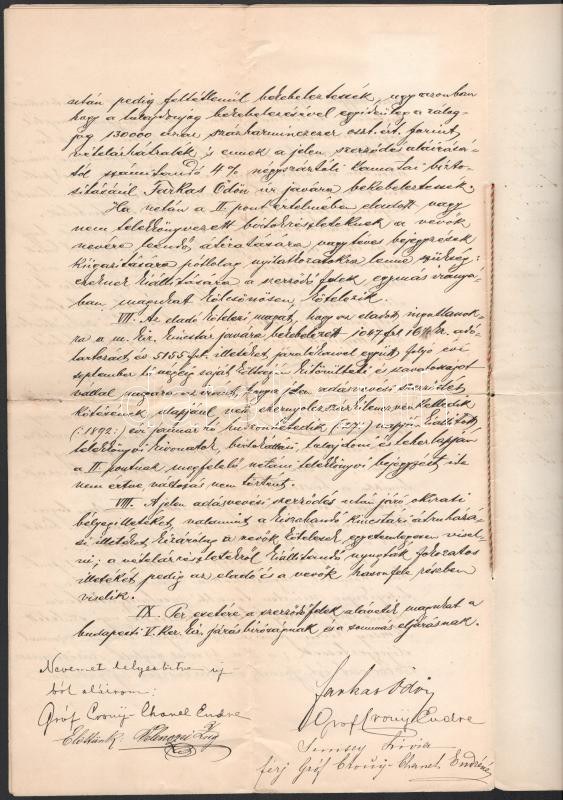 után pedig feltétlenül bekebeleztessék, ugyazonban
hogy a tulajdonjog bekebelezésével egyidejűleg a zálog-
jog 130000 azaz százharminczezer oszt. ért. forint
vételárhátralék és ennek a jelen szerződés aláírásá-
tól számítandó 4% négyszáztóli kamatai bizto-
sításául Farkas Ödön úr javára bekebeleztessék.
Ha netán a II pont értelmében eladott vagy
nem telekkönyvezett birtokrészleteknek a vevők
nevére leendő átíratására vagy téves bejegyzések
kiigazítására pótlólag nyilatkozatokra lenne szükség:
ezeknek kiállítására a szerződő felek egymás irányá-
ban magukat kölcsönösen kötelezik.
VII. Az eladó kötelezi magát, hogy az eladott ingatlanok-
ra a m. kir. kincstár javára bekebelezett 1047 frt adó-
tartozást és 5155 frt. illetéket járulékaival együtt folyó évi
september hó végéig saját költségén kitörölteti és szavatosságot
vállal magára az iránt, hogy a jelen adásvevési szerződés
kötésének alapjául vett ezernyolczszázkilenczvenkettedik
(:1892:) évi január hó napján kiállított
telekkönyvi kivonatok, birtokállási, tulajdoni és teherlapján
a II pontnak megfelelő netáni telekkönyvi bejegyzést ide
nem értve változás nem történt.
VIII. A jelen adásvevési szerződés után járó okirati
bélyegilletéket, valamint a kiszabandó kincstári átruházá-
si illetéket kizárólag a vevők kötelesek egyetemlegesen visel-
ni; a vételárrészletekről kiállítandó nyugták fokozatos
illetékét pedig az eladó és a vevők hasonfele részben
viselik.
IX. Per esetére a szerződő felek alávetik magukat a
budapesti V. ker. kir. járásbíróságnak és a sommás eljárásnak.
Nevemet helyesbítve uj-
ból aláirom:
Gróf Crouy-Chanel Endre
Előttünk
Farkas Ödön
Gróf Crouy Endre
Semsey Livia
férj Gróf Crouy-Chanel Endréné